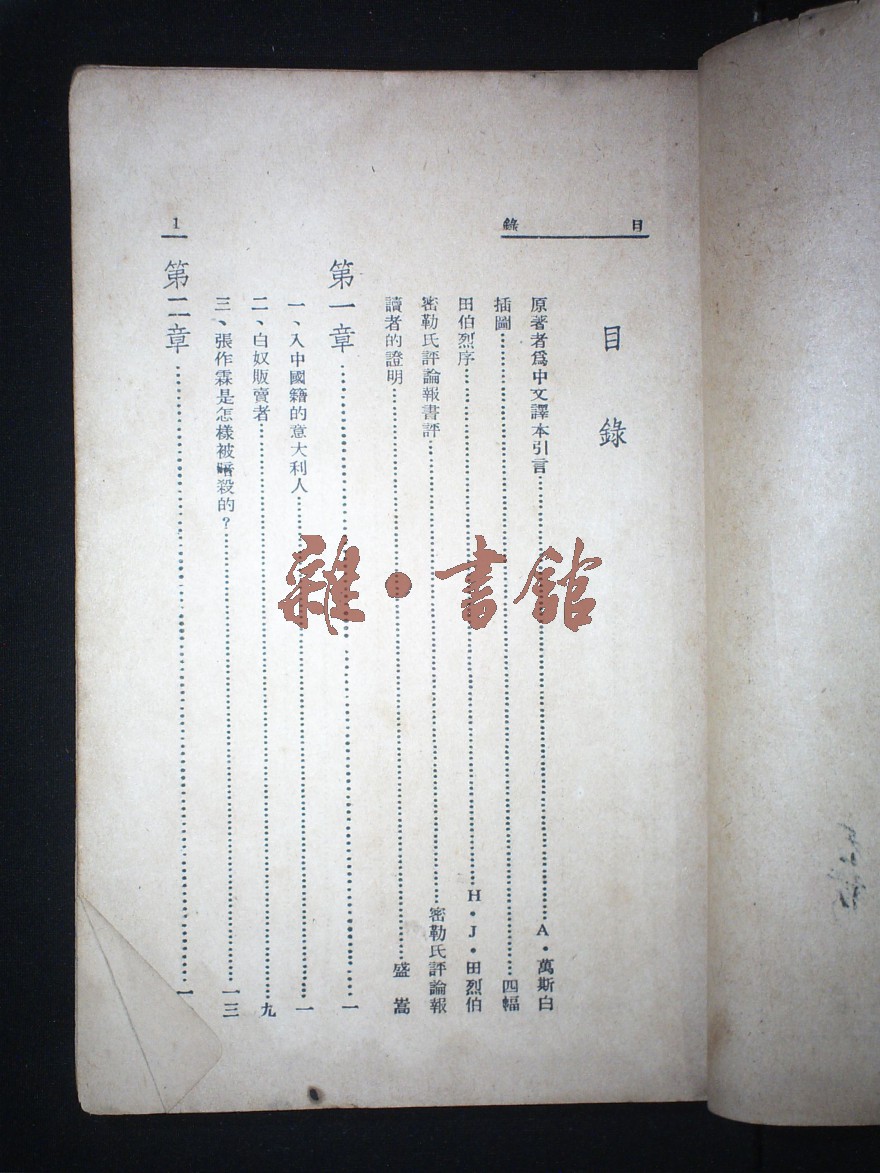 日錄
目錄
原著者爲中文譯本引言……A・萬斯白
插圖……四幅
田伯烈序……H・J・田烈伯
密勒氏評論報書評……密勒氏評論報
讀者的證明……盛嵩
第一章……一
一、入中國籍的意大利人……一
二、白奴販賣者……九
三、張作霖是怎樣被暗殺的？……一三
第二章……一
1
雜・書館